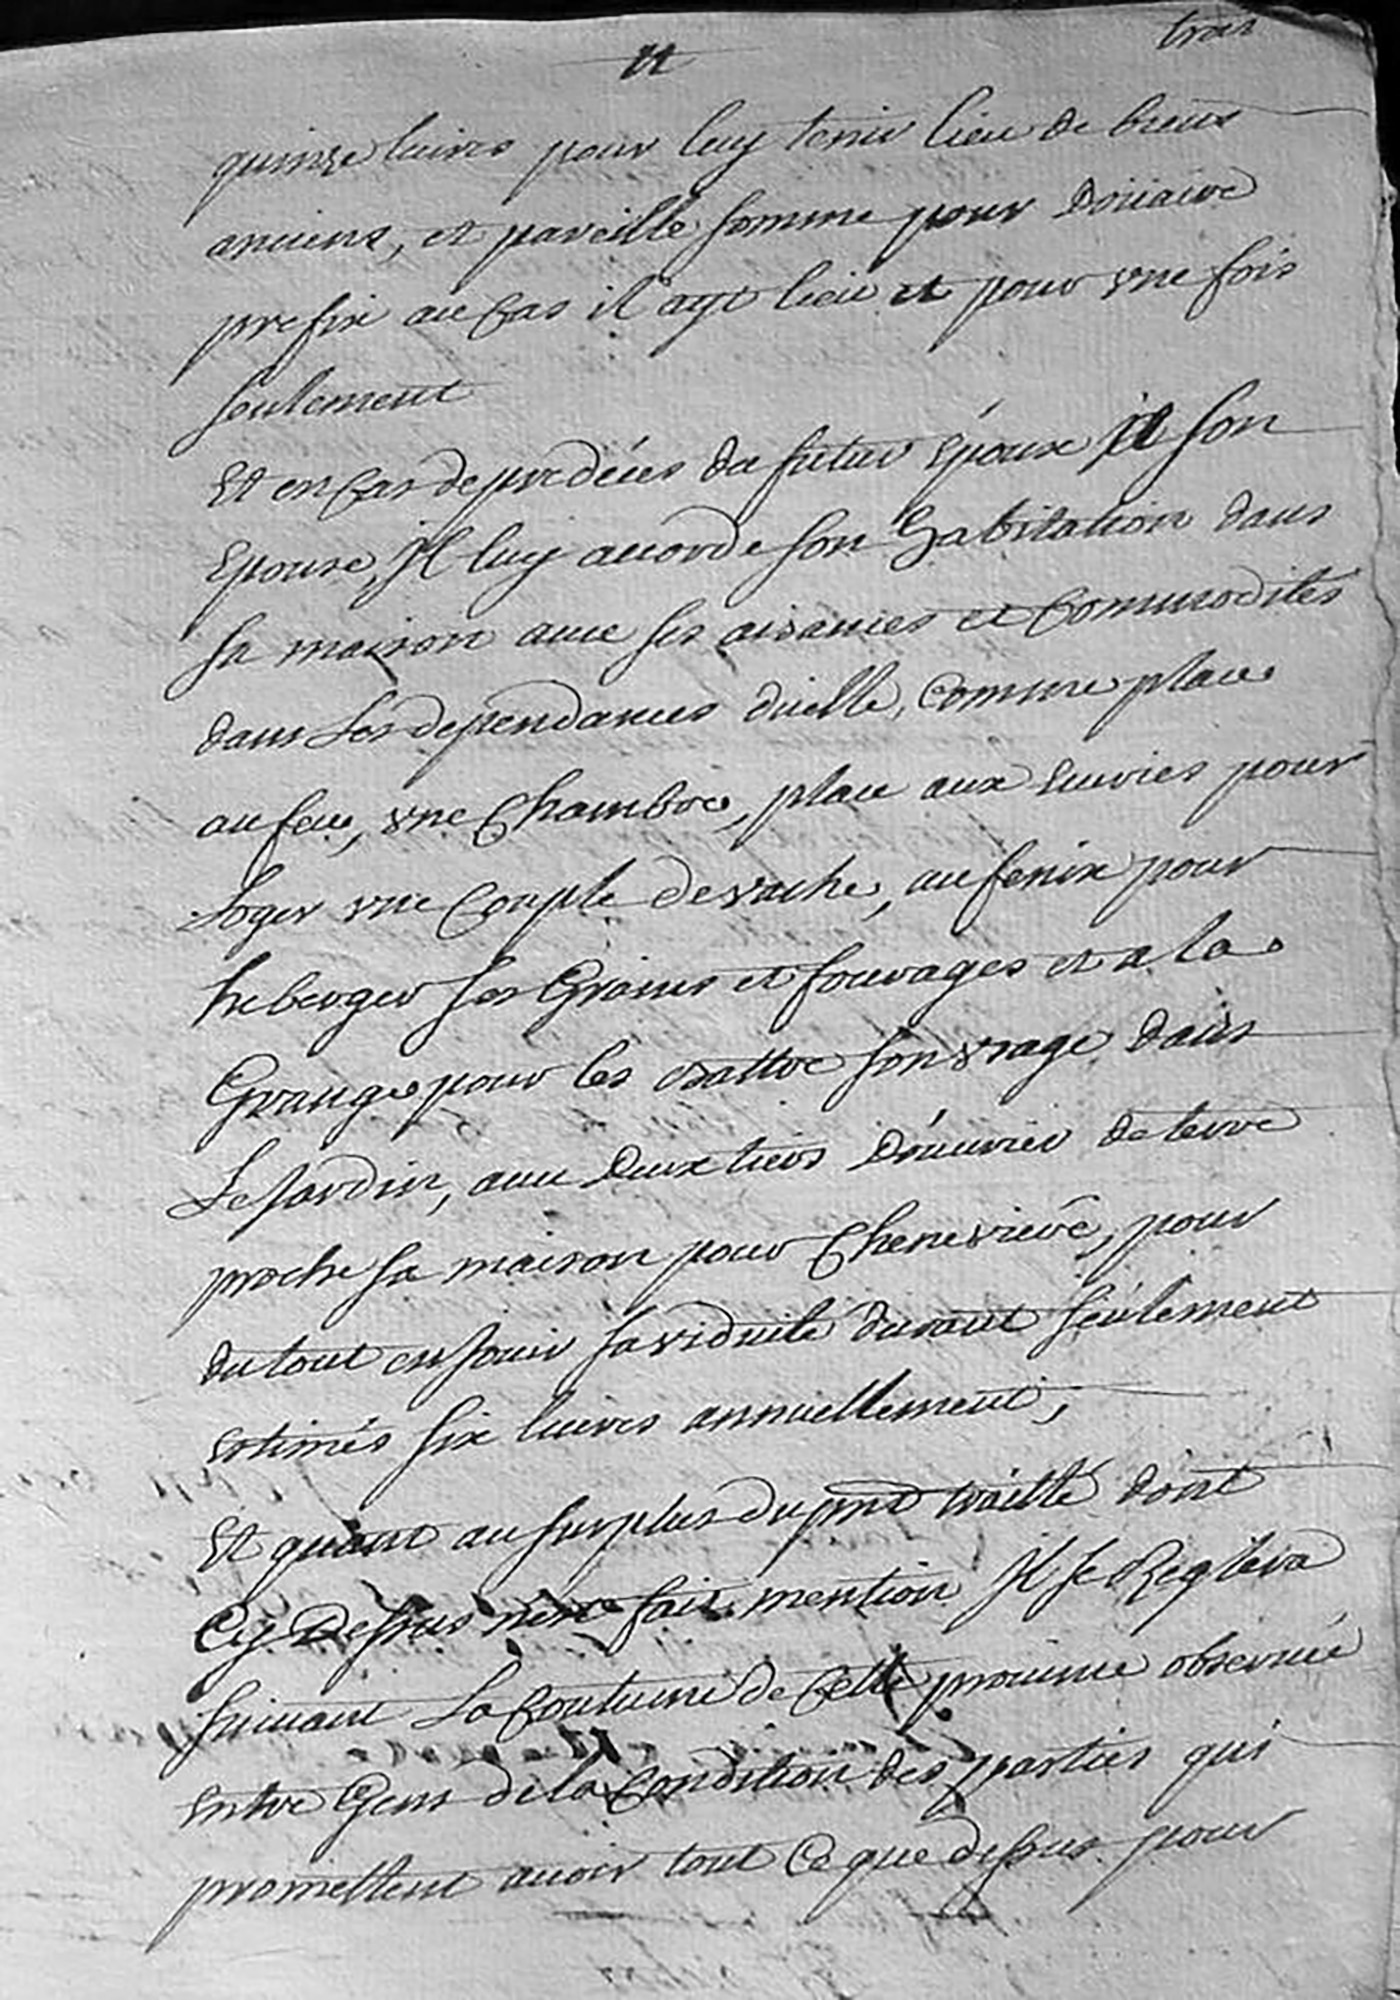 trois
quinze livres pour luy tenir lieu de biens
anciens, et pareille somme pour Doüaire
prefix au Cas il ayt lieu et pour vne fois
seulement
Et en Cas de predéces du futur Epoux a son
Epouse, Il luy accorde son habitation dans
sa maison avec ses aisances et Commodités
dans Les dependances d'icelle, Comme place
au feu, vne Chambre, place aux Ecuries pour
Loger vne Couple de vache, au fenix pour
heberger ses Grains et fourages et a la
Grange pour les Battre son vsage dans
Le Jardin, avec Deux tiers D'ouvrier de terre
proche sa maison pour Cheneviere, pour
du tout en Jouir sa viduité durant seulement
Estimés six livres annuellement;
Et quant au surplus du pnt traitté dont
Cy Dessus n'est fait mention Il se Reglera
suivant La Coutume de Cette province observée
entre Gens de la Condition des parties qui
promettent avoir tout Ce que dessus pour